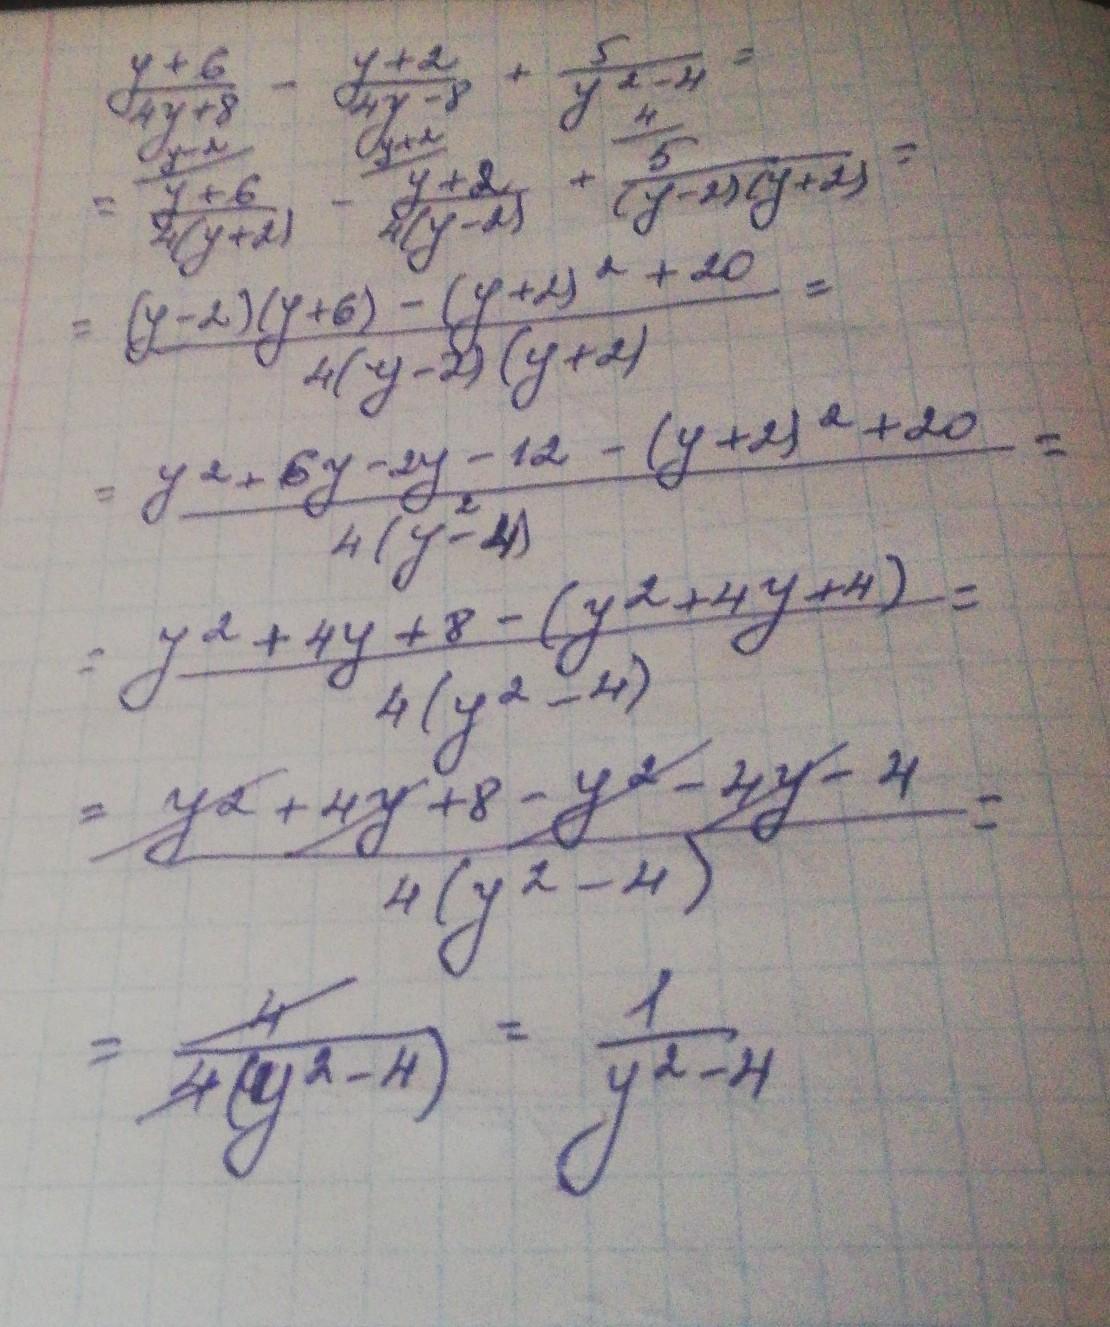 (y+6)/(4y+8) - (y+2)/(4y-8) + 5/(y²-4) =
y-2 y+2 4
= (y+6)/(4(y+2)) - (y+2)/(4(y-2)) + 5/((y-2)(y+2)) =
= ((y-2)(y+6) - (y+2)² + 20)/(4(y-2)(y+2)) =
= (y²+6y-2y-12-(y+2)²+20)/(4(y²-4)) =
= (y²+4y+8-(y²+4y+4))/(4(y²-4)) =
= (y²+4y+8-y²-4y-4)/(4(y²-4)) =
= 4/(4(y²-4)) = 1/(y²-4)